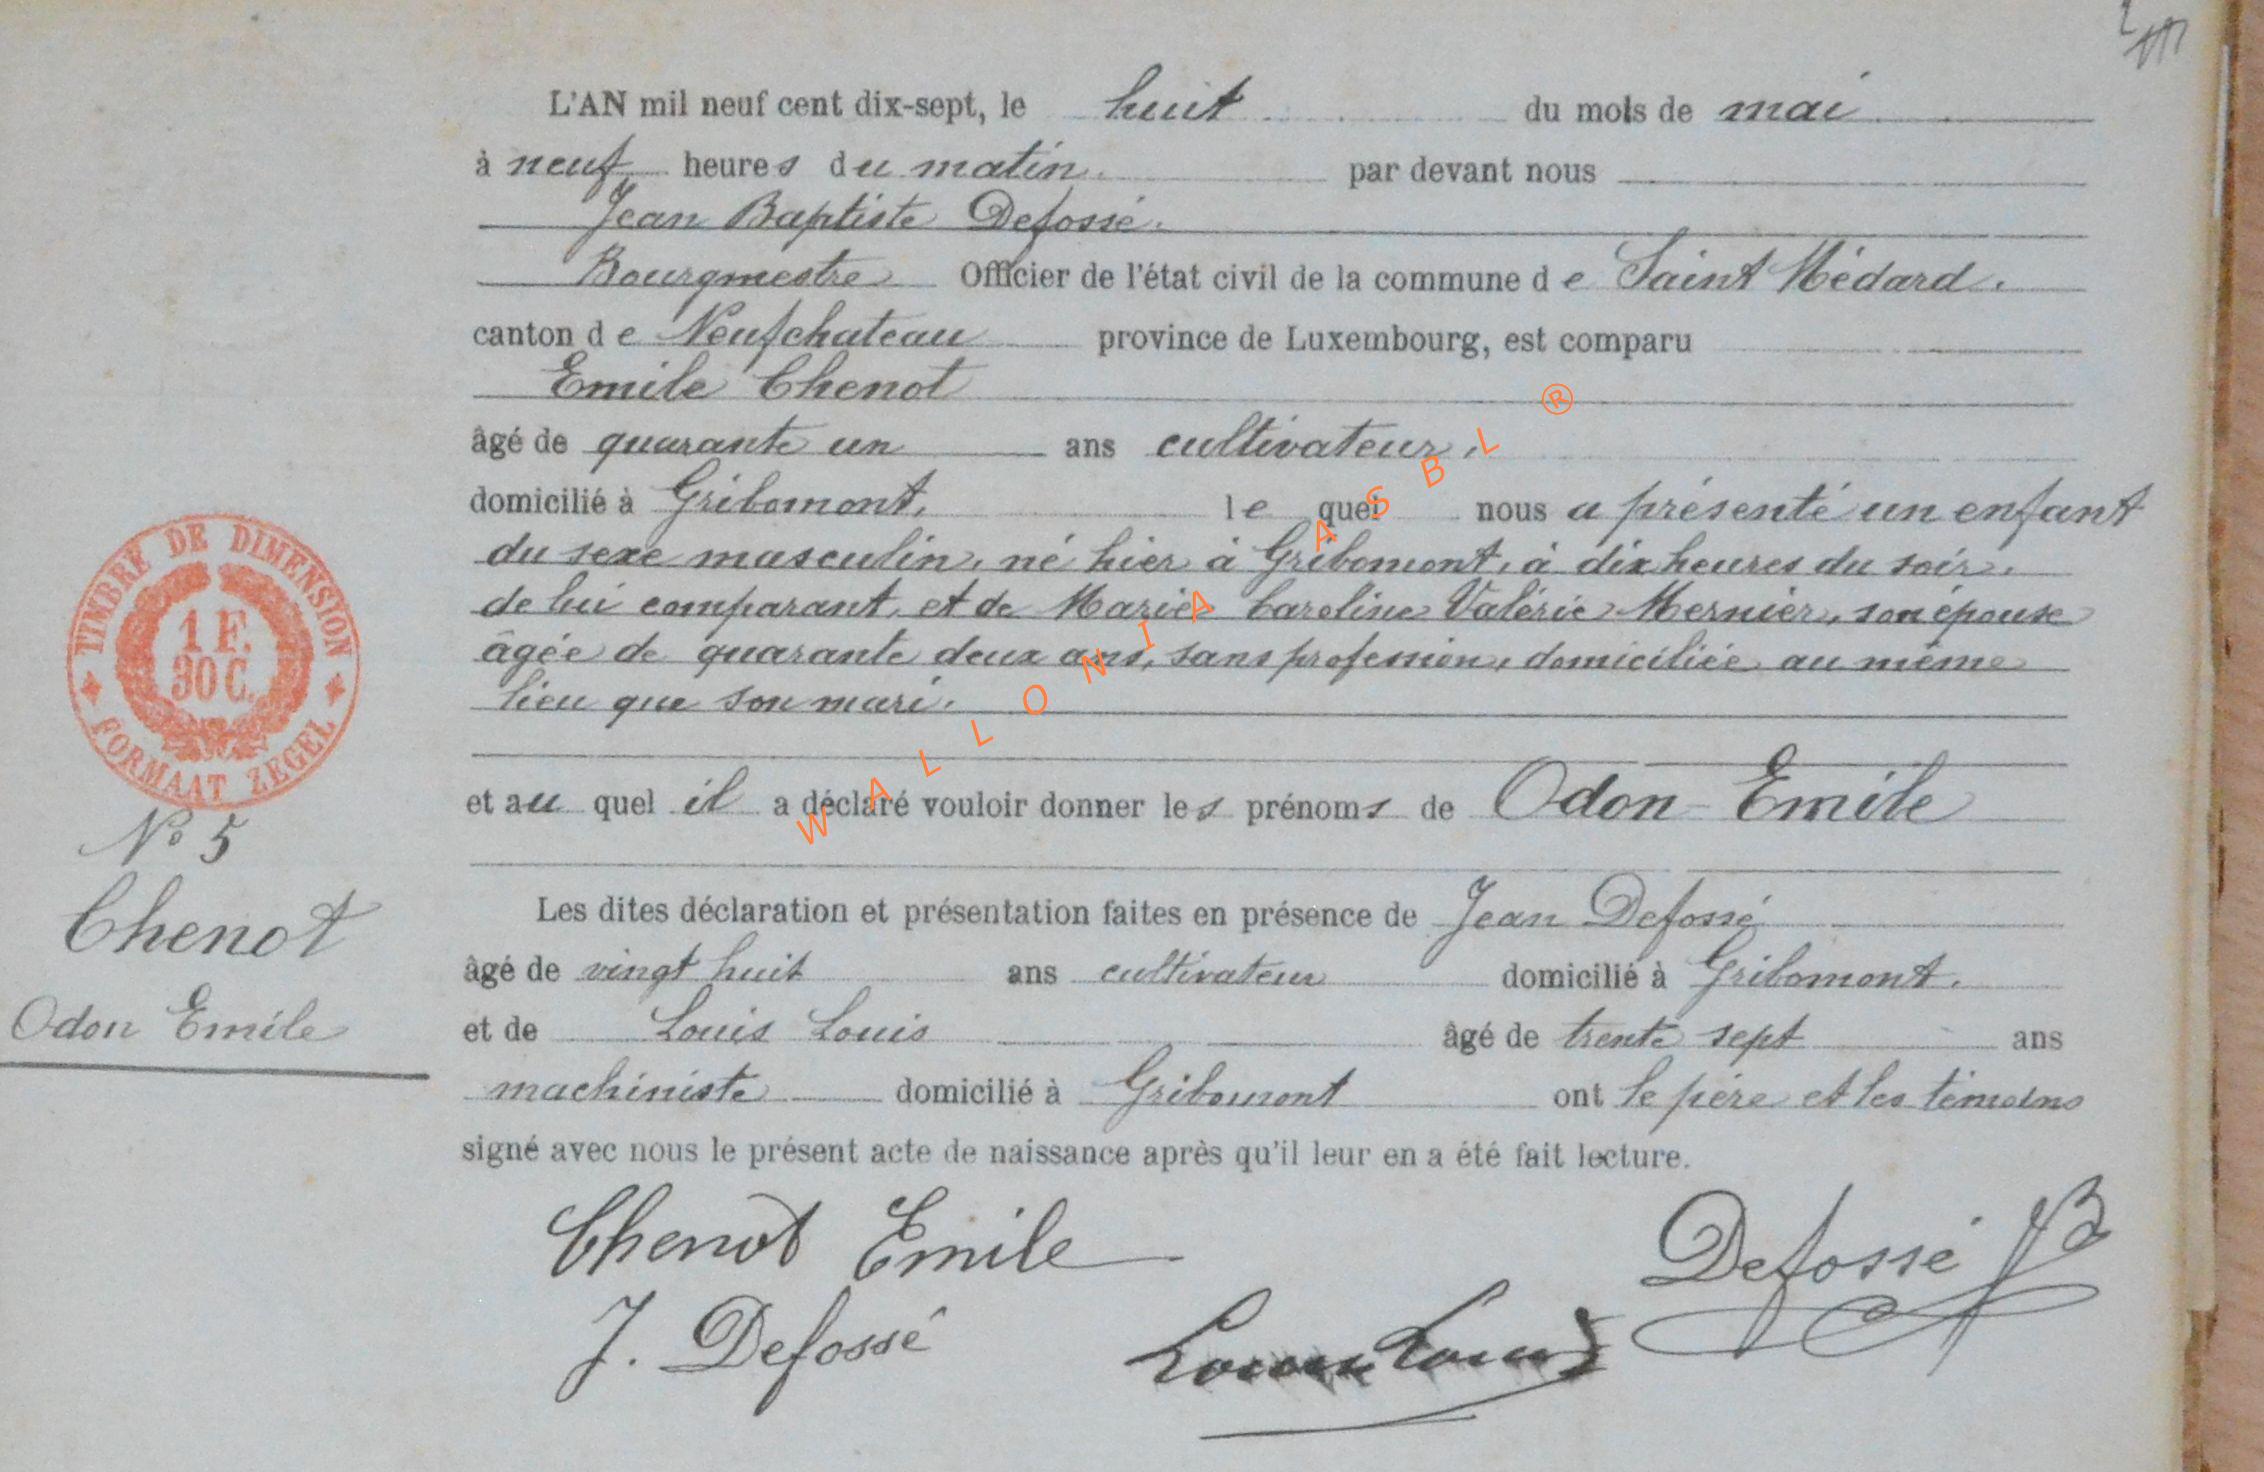 L'AN mil neuf cent dix-sept, le huit du mois de mai
à neuf heures du matin. par devant nous
Jean Baptiste Defossé.
Bourgmestre Officier de l'état civil de la commune de Saint Médard.
canton de Neufchateau province de Luxembourg, est comparu
Emile Chenot
âgé de quarante un ans cultivateur,
domicilié à Gribomont, le quel nous a présenté un enfant
du sexe masculin, né hier à Gribomont, à dix heures du soir,
de lui comparant, et de Marie Caroline Valérie Mernier, son épouse
âgée de quarante deux ans, sans profession, domiciliée au même
lieu que son mari.
et au quel il a déclaré vouloir donner les prénoms de Odon-Emile
Les dites déclaration et présentation faites en présence de Jean Defossé
âgé de vingt huit ans cultivateur domicilié à Gribomont.
et de Louis Louis âgé de trente sept ans
machiniste domicilié à Gribomont ont le père et les témoins
signé avec nous le présent acte de naissance après qu'il leur en a été fait lecture.
Chenot Emile
Defossé JB
J. Defossé
Louis Louis
TIMBRE DE DIMENSION
1 F.
30 C.
FORMAAT ZEGEL
No 5
Chenot
Odon Emile
WALLONIA ASBL ®